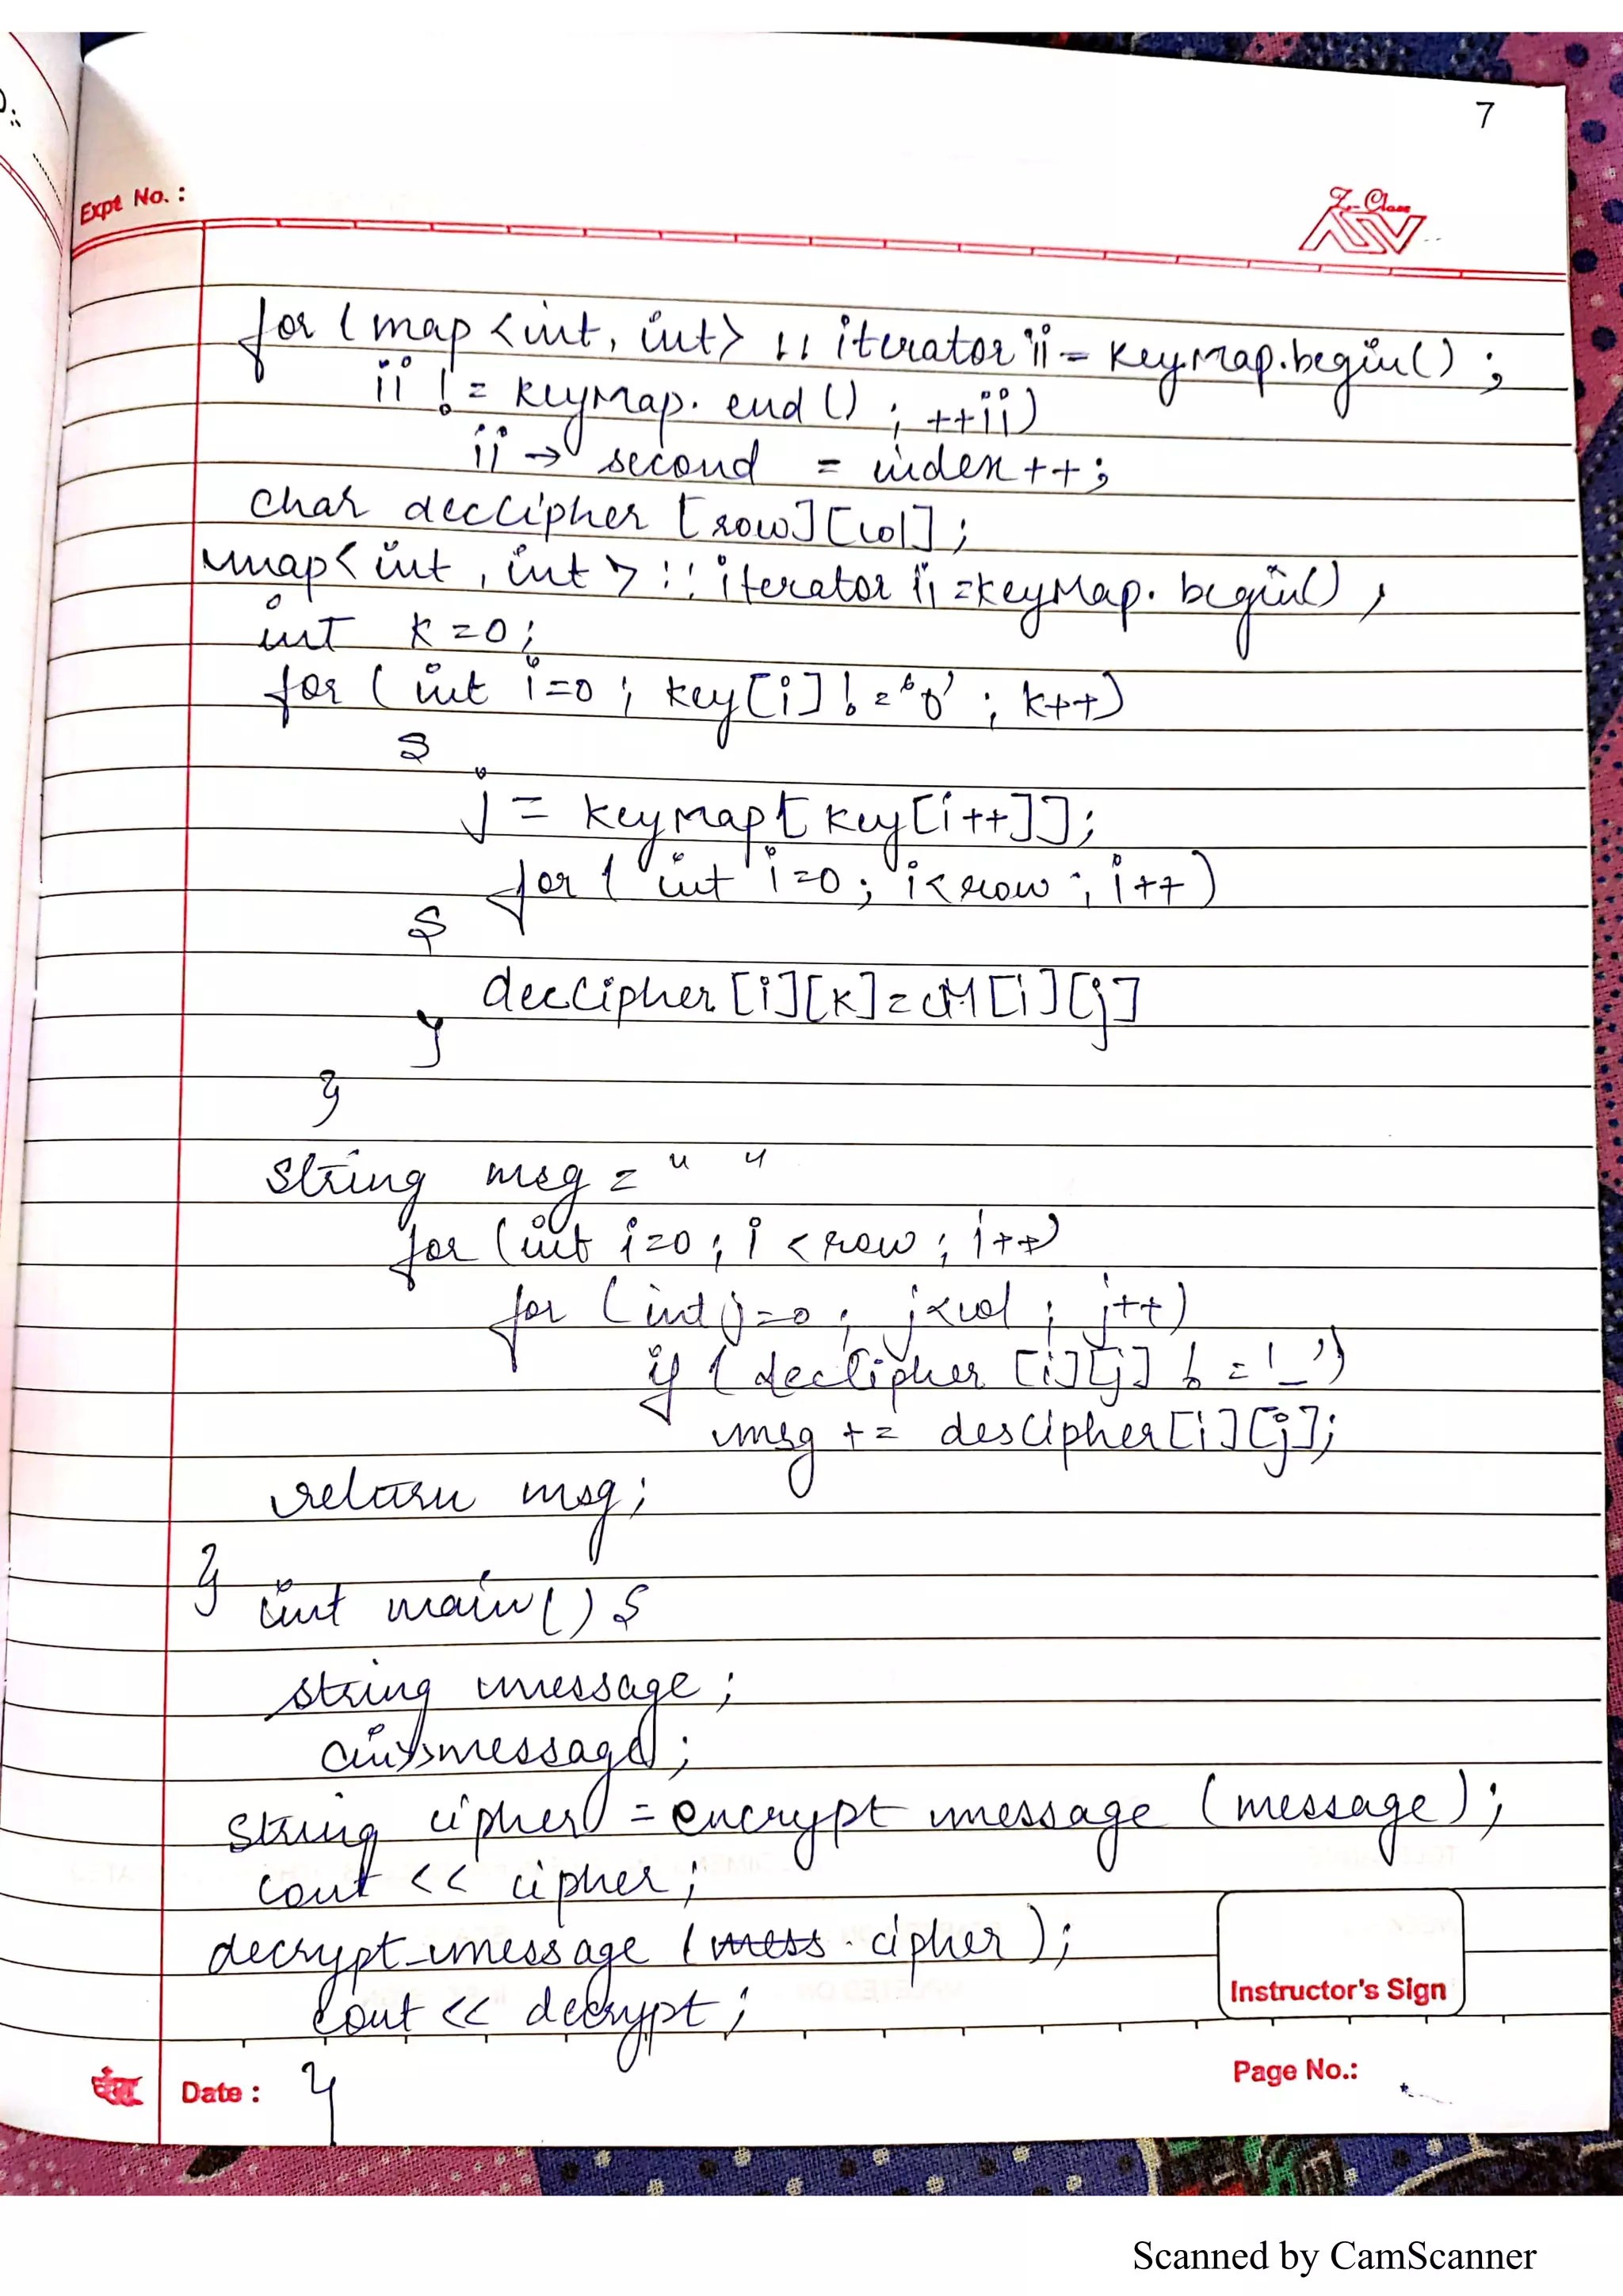 7
Expt No. :
Z-Class
ADV
for (map <int, int> :: iterator ii = keyMap.begin() ;
ii != keyMap. end () ; ++ii)
ii → second = index ++;
char decCipher [row][col] ;
map< int , int > :: iterator ii =keyMap. begin() ,
int k =0 ;
for ( int i=0 ; key[i] != '\0' ; k++)
{
j = keyMap[ key[i++]];
for ( int i=0 ; i< row ; i++)
{
decCipher [i][k] = cM[i][j]
}
}
string msg = " "
for (int i=0 ; i < row ; i++)
for (int j=0 ; j<col ; j++)
if ( decCipher [i][j] != '_')
msg += desCipher[i][j];
return msg ;
}
int main() {
string message ;
cin>>message ;
string cipher = encrypt message (message) ;
cout << cipher ;
decrypt_message (mess cipher ) ;
cout << decrypt ;
}
Instructor's Sign
Date :
Page No.:
Scanned by CamScanner